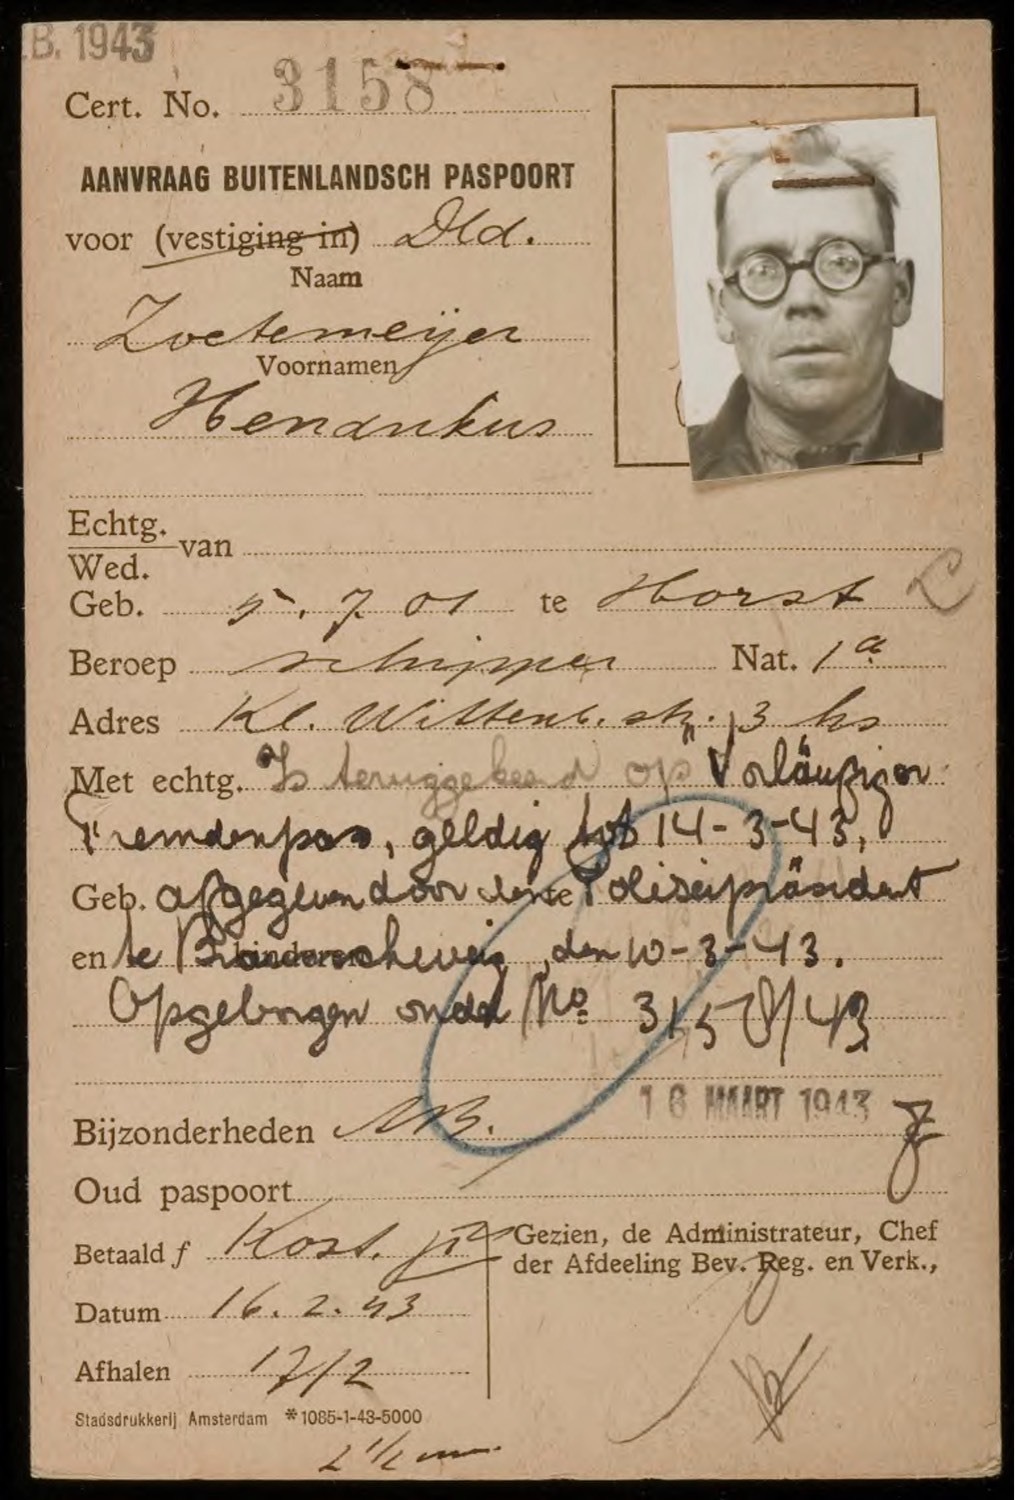 B. 1943
Cert. No. 3158
AANVRAAG BUITENLANDSCH PASPOORT
voor (vestiging in) Dld.
Naam
Zoetemeijer
Voornamen
Hendrikus
Echtg.
van
Wed.
Geb. 5. 7. 01 te Horst L
Beroep schipper Nat. 1a
Adres Kl. Wittenb. str. 13 hs
Met echtg. Is teruggekeerd op "Vorläufiger
Fremdenpass, geldig tot 14-3-43,
Geb. afgegeven door den te Polizeipräsident
en te kinderen , den 10-3-43.
Opgeborgen onder No 3158/43
16 MAART 1943
Bijzonderheden NB.
Oud paspoort
Betaald f Kost.
Gezien, de Administrateur, Chef
der Afdeeling Bev. Reg. en Verk.,
Datum 16. 2. 43
Afhalen 17/2
Stadsdrukkerij Amsterdam *1085-1-43-5000
2 1/2